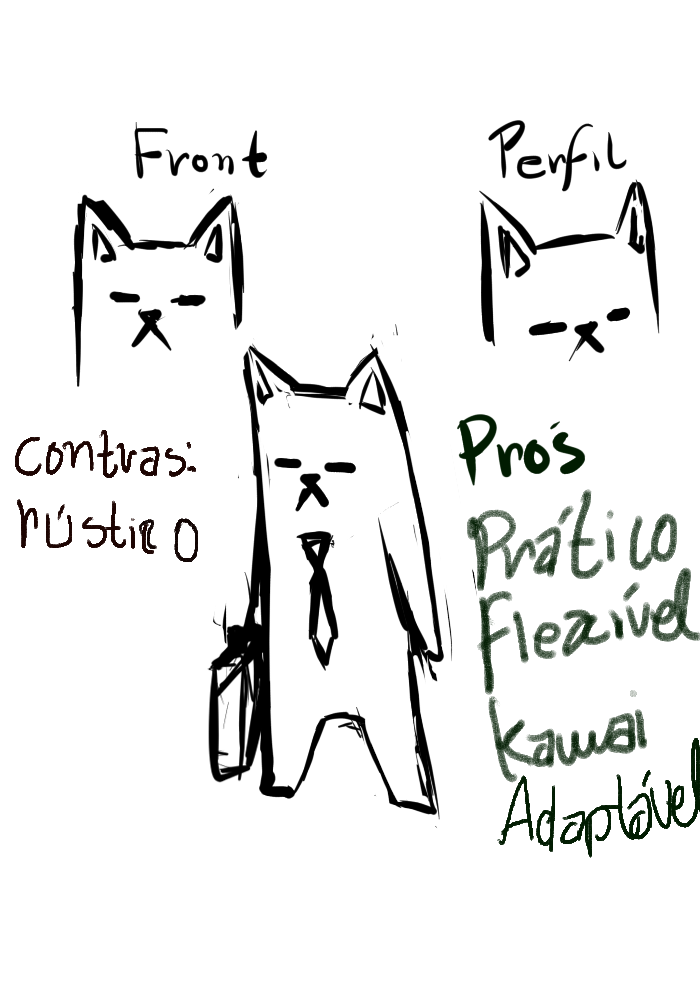 Front
Perfil
Contras:
rústico
Pro's
Prático
Flexível
Kawai
Adaptável